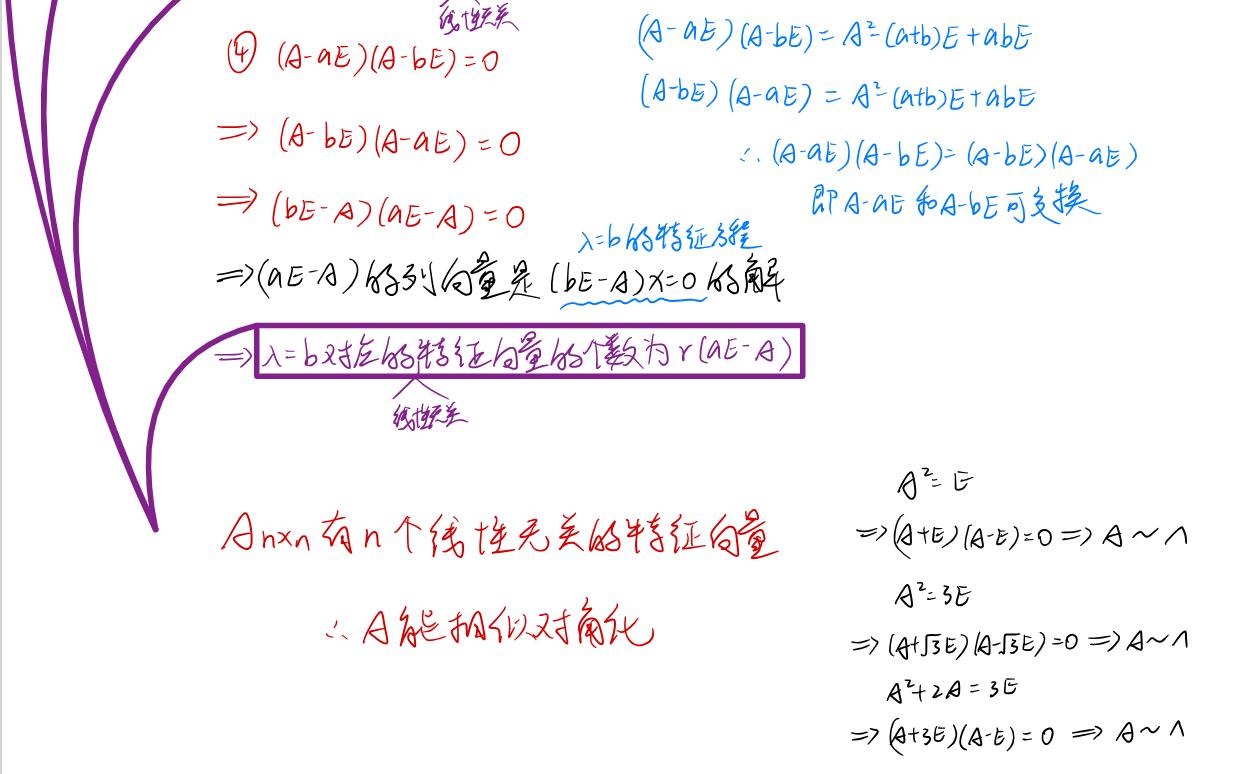 线性无关
④ (A-aE)(A-bE)=0
⇒ (A-bE)(A-aE)=0
⇒ (bE-A)(aE-A)=0
λ=b的特征方程
⇒(aE-A)的列向量是(bE-A)x=0的解
⇒λ=b对应的特征向量的个数为r(aE-A)
线性无关
(A-aE)(A-bE)=A²-(a+b)E+abE
(A-bE)(A-aE)=A²-(a+b)E+abE
∴(A-aE)(A-bE)=(A-bE)(A-aE)
即A-aE和A-bE可交换
Aₙₓₙ有n个线性无关的特征向量
∴A能相似对角化
A²=E
⇒(A+E)(A-E)=0⇒A~Λ
A²=3E
⇒(A+√3E)(A-√3E)=0⇒A~Λ
A²+2A=3E
⇒(A+3E)(A-E)=0⇒A~Λ